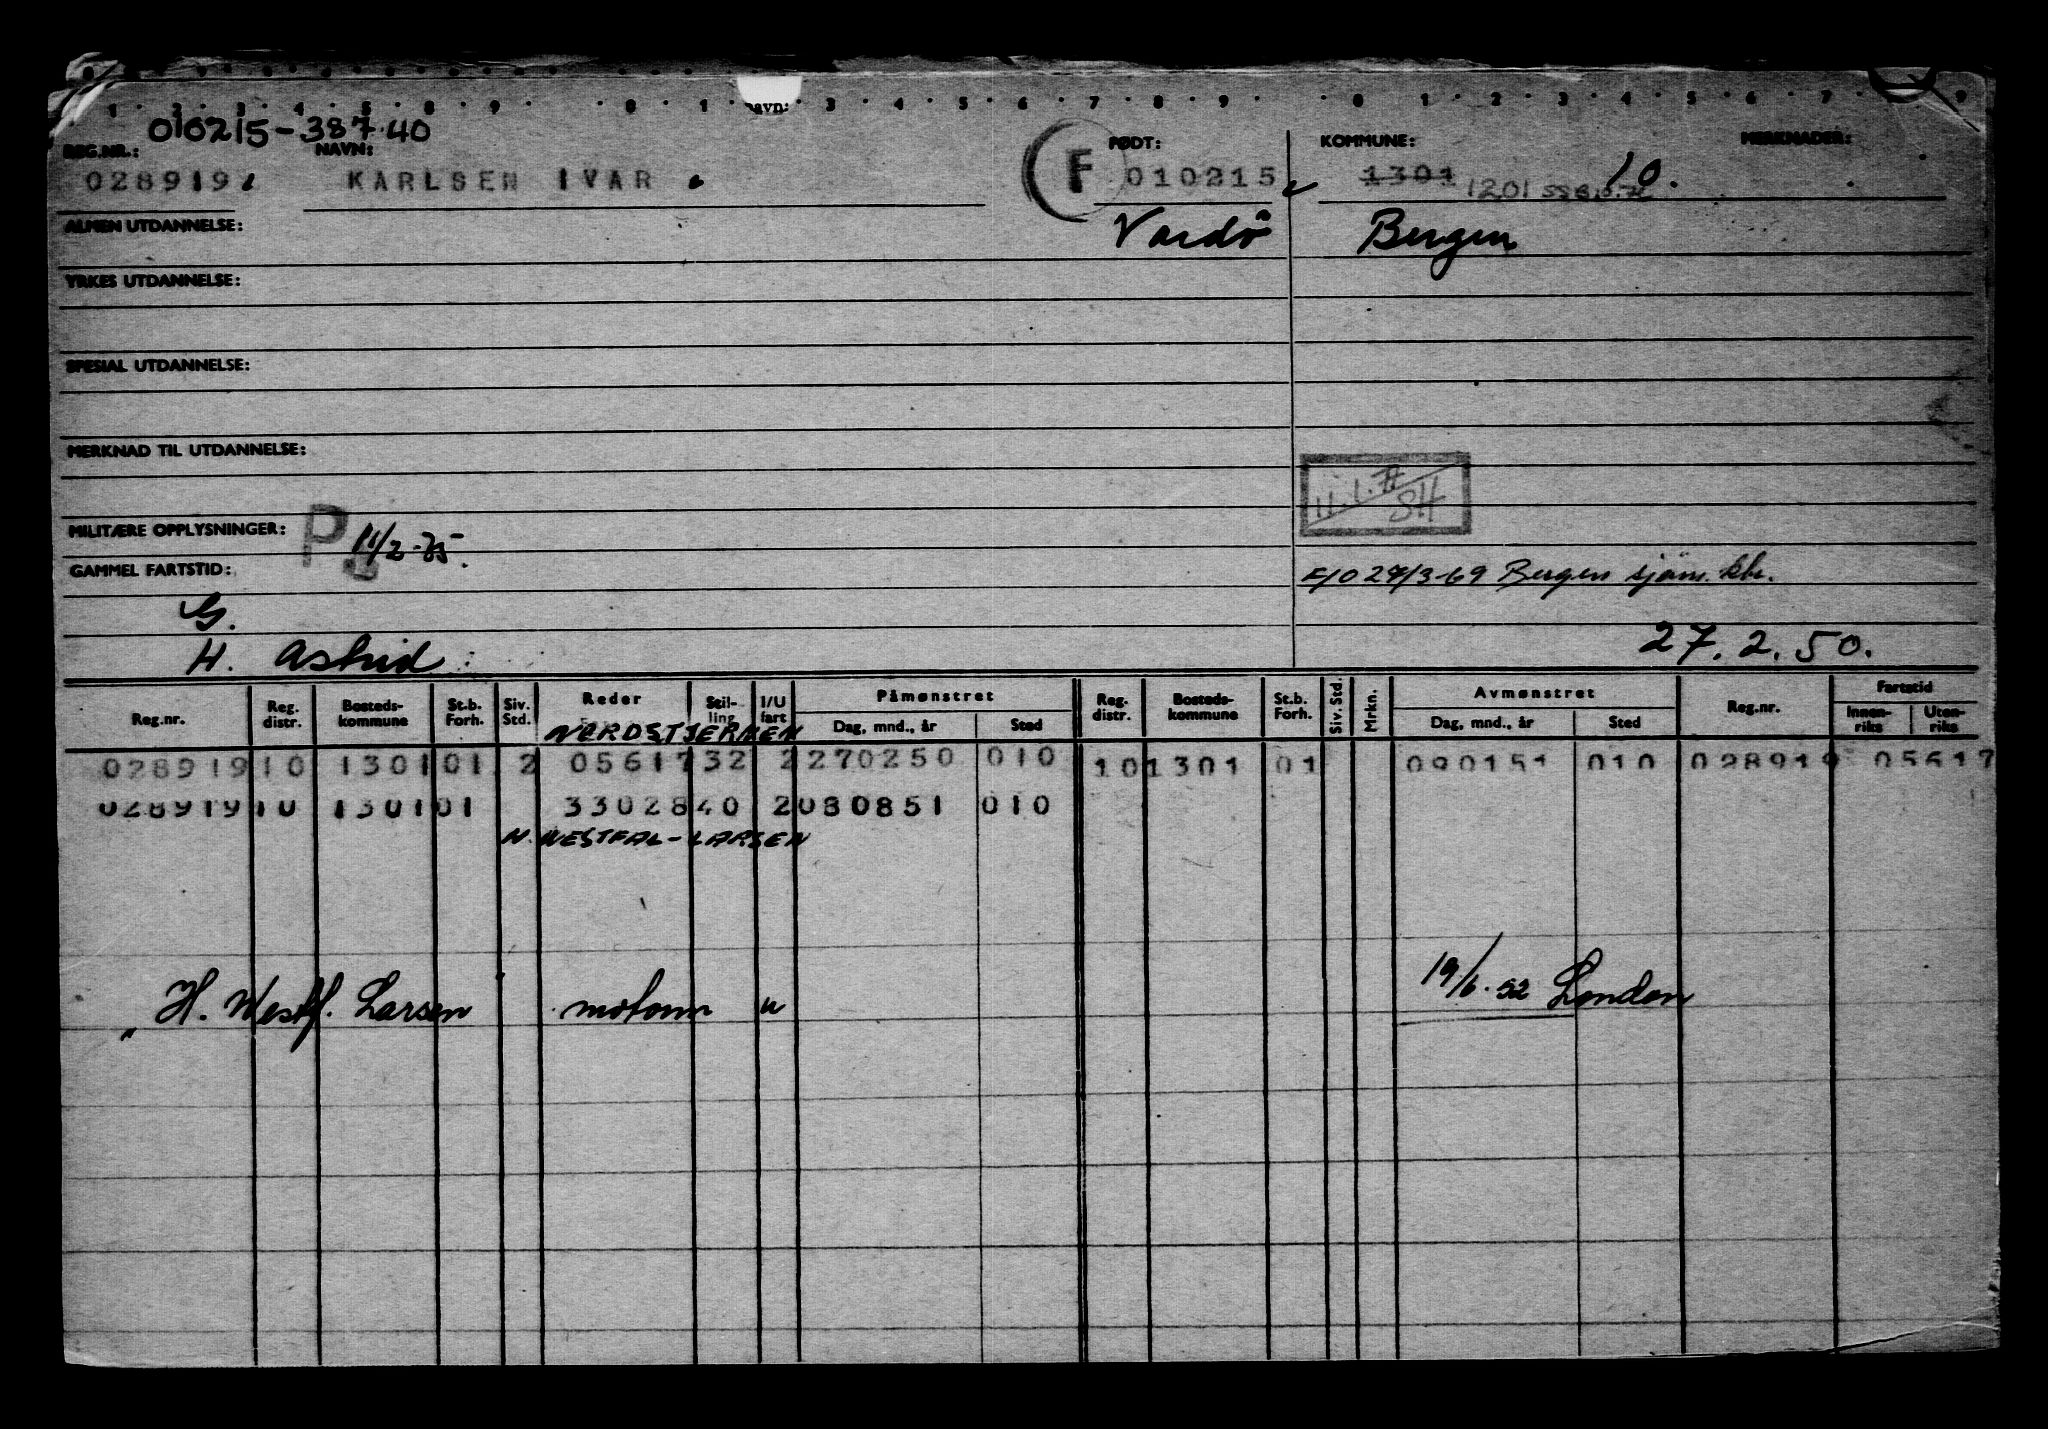 1 2 3 4 5 8 9 0 1 navn: 3 4 5 6 7 8 9 0 1 2 3 4 5 6 7 9
010215-387.40
REG.NR.: NAVN: FØDT: KOMMUNE: MERKNADER:
028919 KARLSEN IVAR F 010215 1301 1201 10.
ALMEN UTDANNELSE: Vardö Bergen
YRKES UTDANNELSE:
SPESIAL UTDANNELSE:
MERKNAD TIL UTDANNELSE:
11.1.77 SH
MILITÆRE OPPLYSNINGER: P 11/2-75.
GAMMEL FARTSTID: F/O 27/3-69 Bergen sjøm. ktr.
G.
H. Astrid 27.2.50.
Reg.nr. Reg. distr. Bosteds- kommune St.b. Forh. Siv. Std. Reder Stil- ling I/U fart Påmønstret Dag, mnd., år Sted Reg. distr. Bosteds- kommune St.b. Forh. Siv. Std. Mrkn. Avmønstret Dag, mnd., år Sted Reg.nr. Fartstid Innen- riks Uten- riks
NORDSTJERNEN
028919 10 1301 01 2 05617 32 2 270250 010 10 1301 01 090151 010 028919 05617
028919 10 1301 01 33028 40 2 080851 010
H. WESTFAL-LARSEN
H. Westf. Larsen motorm u 19/6.52 London